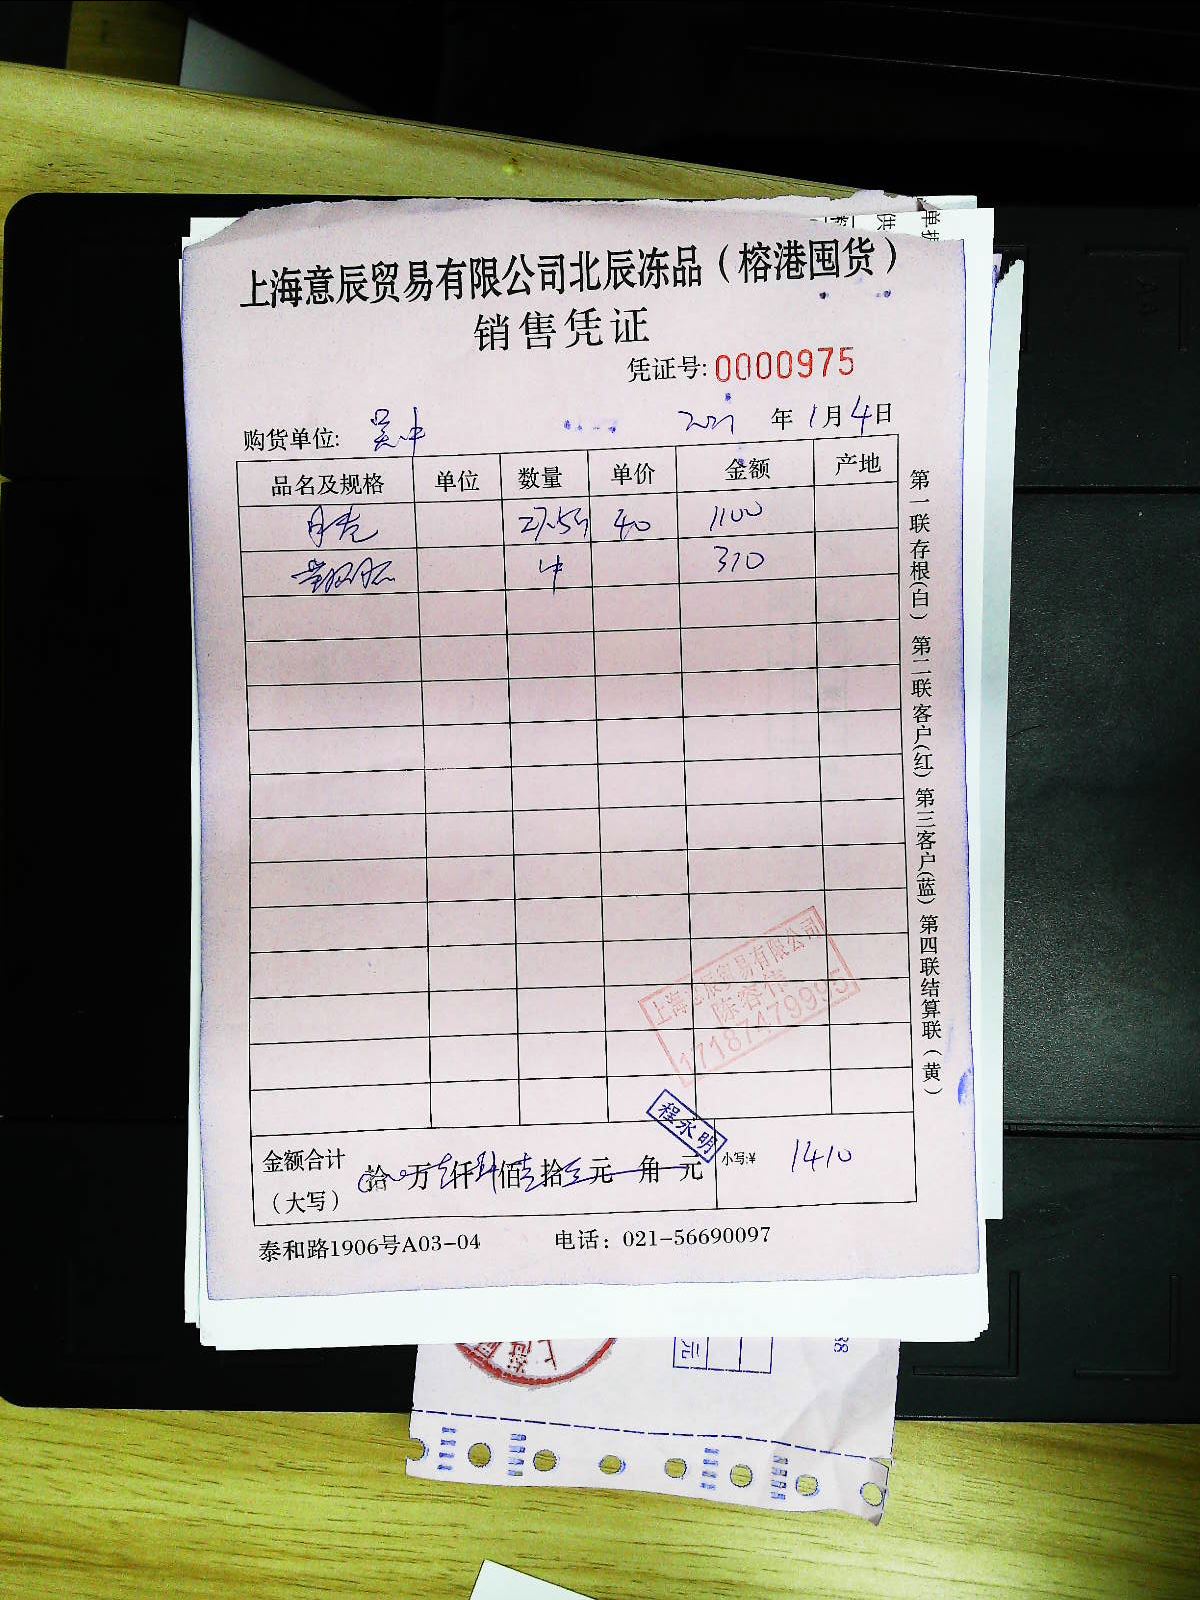 上海意辰贸易有限公司北辰冻品（榕港囤货）
销售凭证
凭证号: 0000975
购货单位: 吴中 2021 年 1 月 4 日
品名及规格 单位 数量 单价 金额 产地
27.5 40 1100
310
第一联存根(白) 第二联客户(红) 第三客户(蓝) 第四联结算联(黄)
上海意辰贸易有限公司
陈容伟
17187479995
程永明
金额合计
（大写） 拾 万 仟 佰 拾 元 角 元 小写:¥ 1410
泰和路1906号A03-04 电话：021-56690097
元